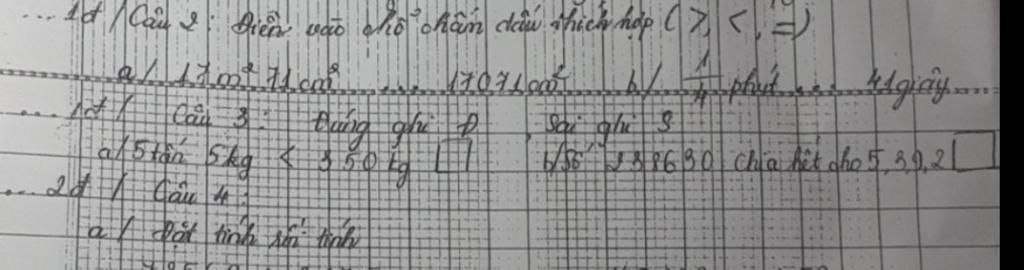 1đ / Câu 2: Điền vào chỗ chấm dấu thích hợp (>, <, =)
a/ 17m² 71cm² ... 17071cm² b/ 1/4 phút ... 41giây
1đ / Câu 3: Đúng ghi Đ, Sai ghi S
a/ 5 tấn 5kg < 350kg □ b/ Số 238630 chia hết cho 5, 3, 9, 2 □
2đ / Câu 4:
a / Đặt tính rồi tính